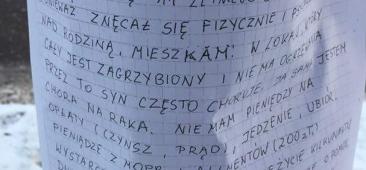 PONIEWAŻ ZNĘCAŁ SIĘ FIZYCZNIE I
NAD RODZINĄ, MIESZKAM: W LOKALU, KTÓRY
CAŁY JEST ZAGRZYBIONY I NIEMA OGRZEWANIA
PRZEZ TO SYN CZĘSTO CHORUJE, JA SAM JESTEM
CHORA NA RAKA. NIE MAM PIENIĘDZY NA
OPŁATY (CZYNSZ, PRĄD) JEDZENIE, UBIÓR.
PIENIĄDZE Z MOPR I ALIMENTÓW (200 ZŁ)
WYSTARC ŻYCIE KILKUNASTU
O POMOC